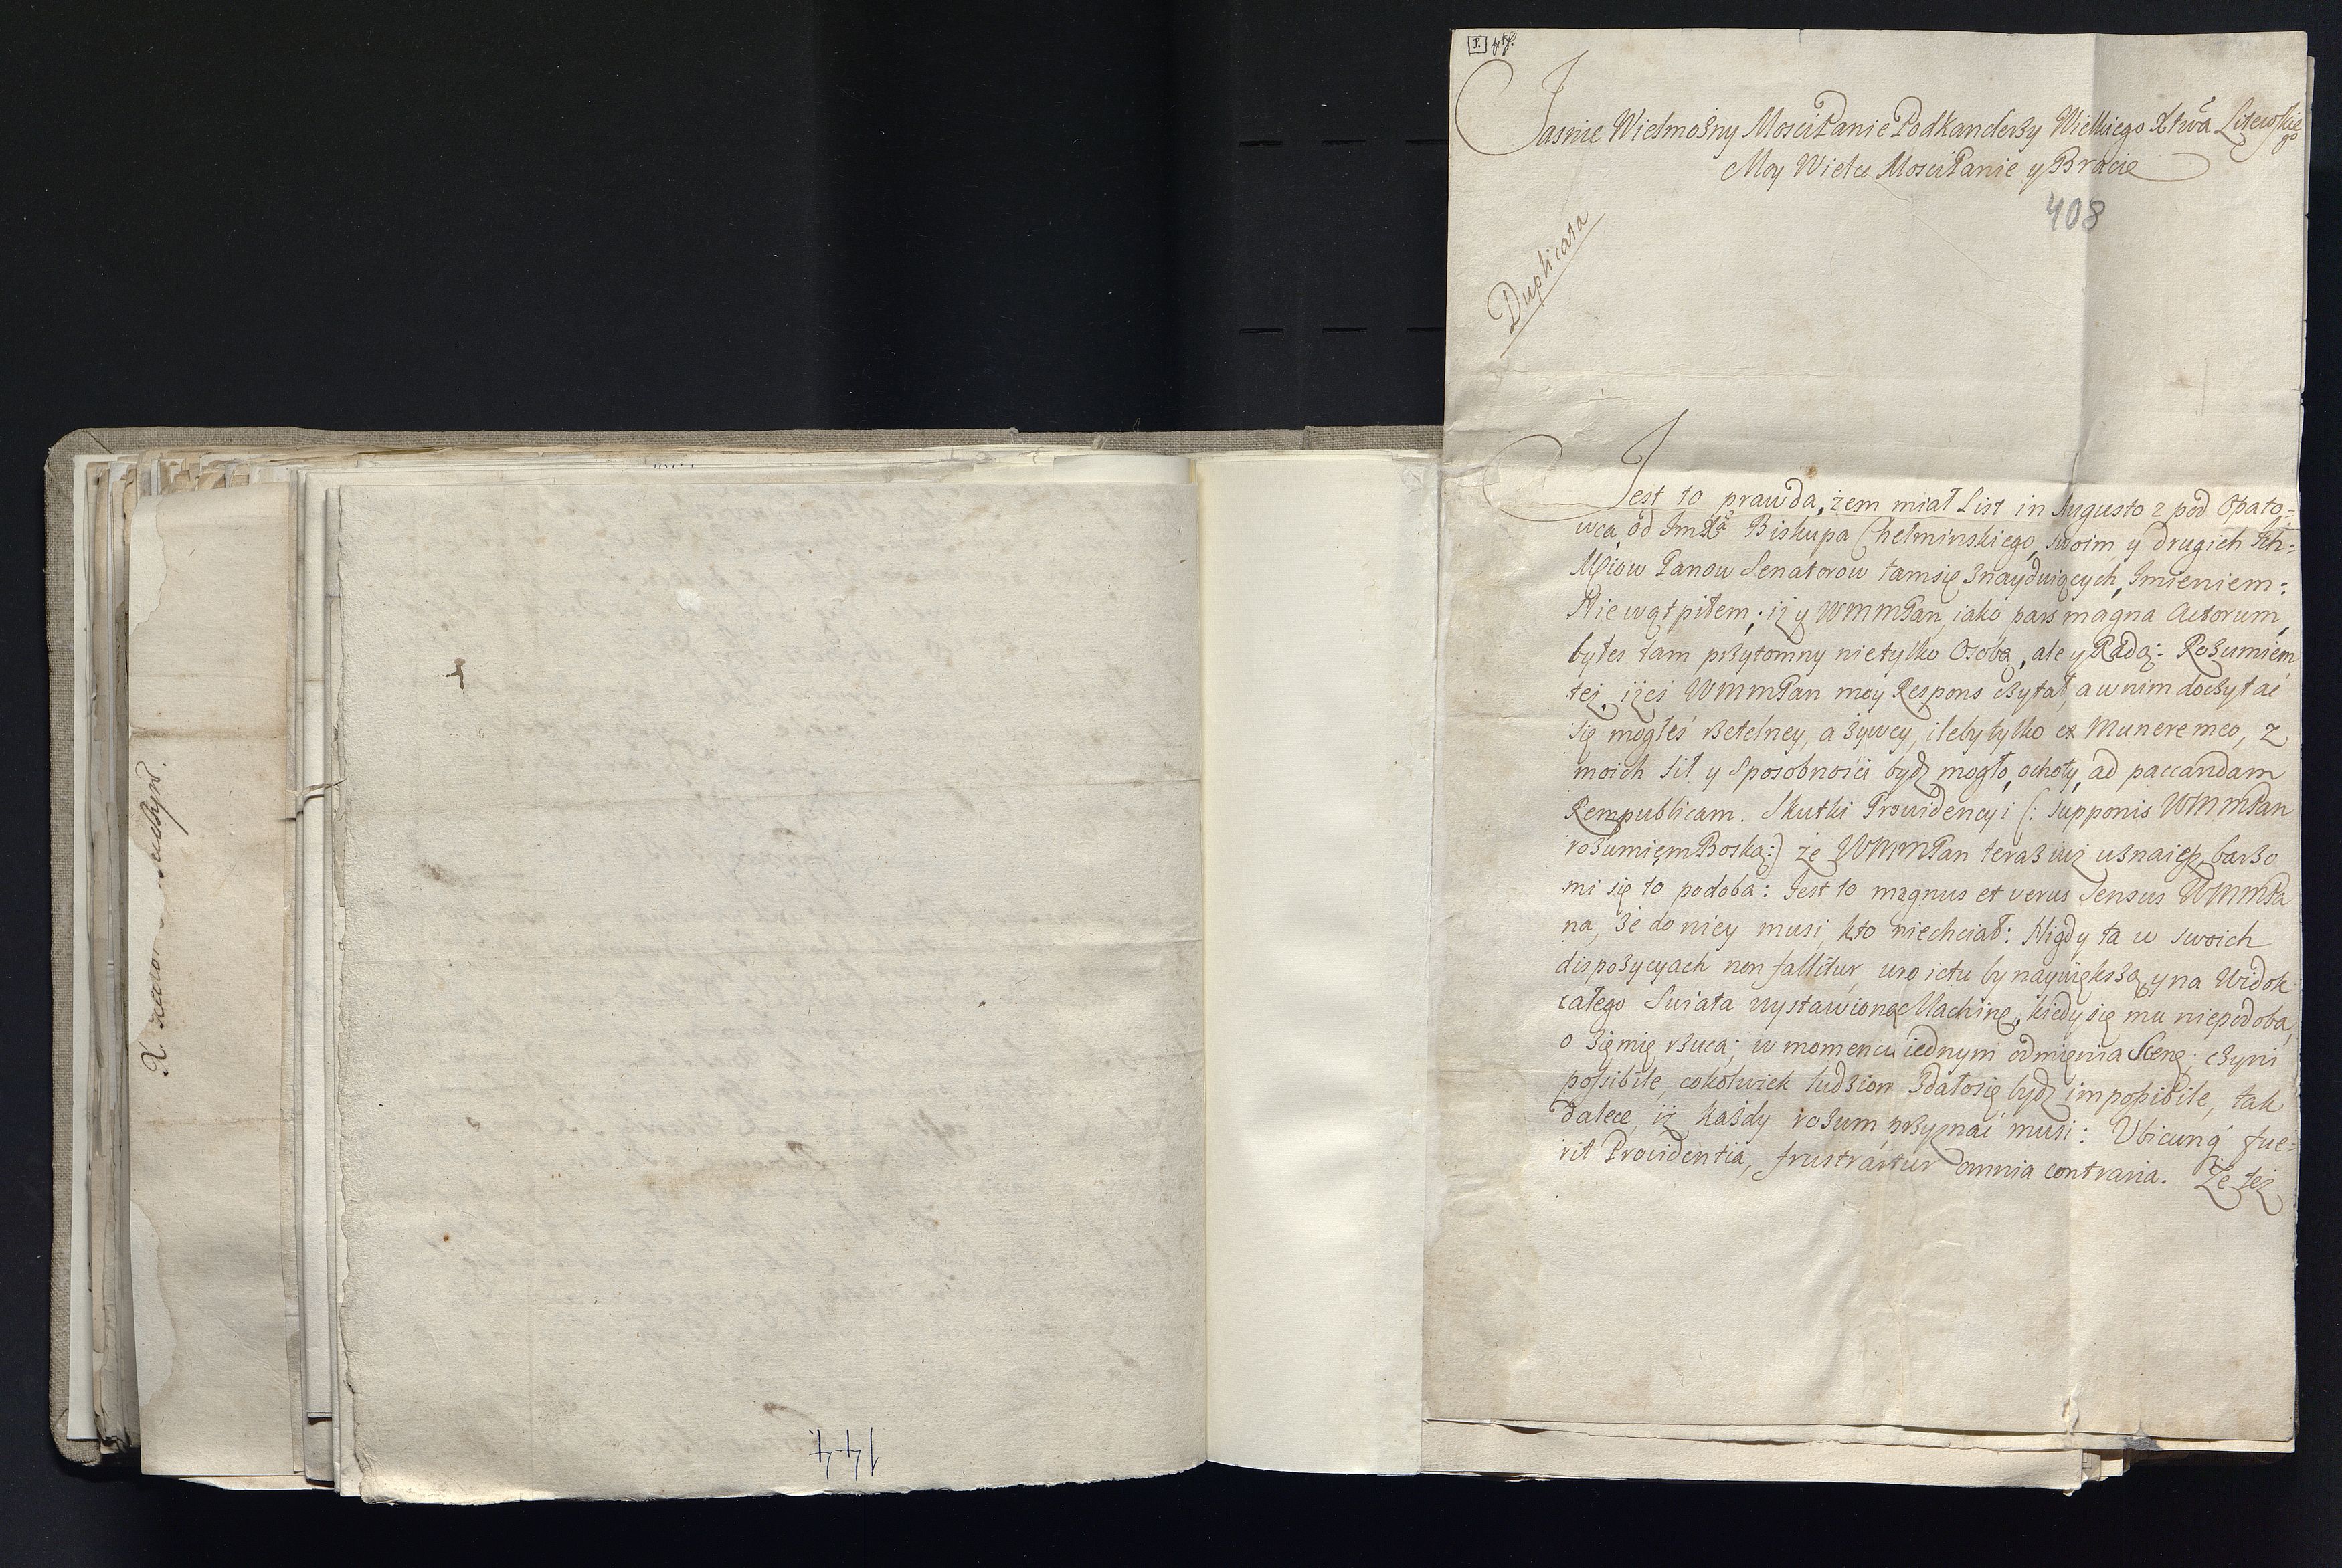 144
P.
Jasnie Wielmożny Mosci Panie Podkanclerzy Wielkiego Xtwa Litewskiego
Moy Wielce Mosci Panie y Bracie
408
Duplicata
Jest to prawda, żem miał List in Augusto z pod Opato=
wca, od ImXa Biskupa Chełminskiego, swoim y drugich Ich=
Mciow Panow Senatorow tam się znayduiących, Imieniem:
Nie wątpiłem; iż y WMMPan, iako pars magna Actorum,
byłes tam przytomny nietylko Osobą, ale y Radą: Rozumiem
też, iżes WMMPan moy Respons czytał, a w nim doczytac
się mogłes rzetelney, a żywey, ileby tylko ex Munere meo, z
moich sił y Sposobności bydź mogło, ochoty, ad paccandam
Rempublicam. Skutki Providencyi (: supponis WMMPan
rozumięm Boską:) że WMMPan teraz iuż uznaiesz, barzo
mi się to podoba: Jest to magnus et verus Sensus WMMPa
na, że do niey musi, kto niechciał: Nigdy ta w swoich
dispozycyach non fallitur, uno ictu by naywiększą, y na Widok
całego Swiata wystawioną Machinę, kiedy się mu niepodoba,
o Zięmię rzuca; w momencu iednym odmięnia Scenę; czyni
possibile, cokolwiek ludziom zdało się bydź impossibile, tak
dalece, iż każdy rozum przyznać musi: Ubicunq fue=
rit Providentia, frustrantur omnia contraria. Że też